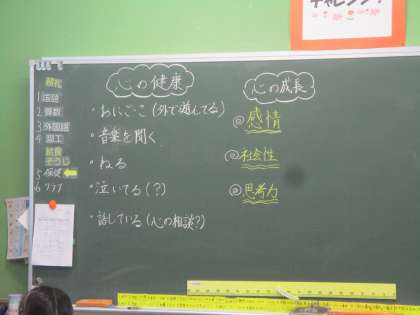 チャレンジ！
朝礼
1 国語
2 算数
3 外国語
4 図工
給食
そうじ
5 保健
6 クラブ
心の健康
・おにごっこ(外で遊んでる)
・音楽を聞く
・ねる
・泣いてる(?)
・話している(心の相談?)
心の成長
◎感情
◎社会性
◎思考力